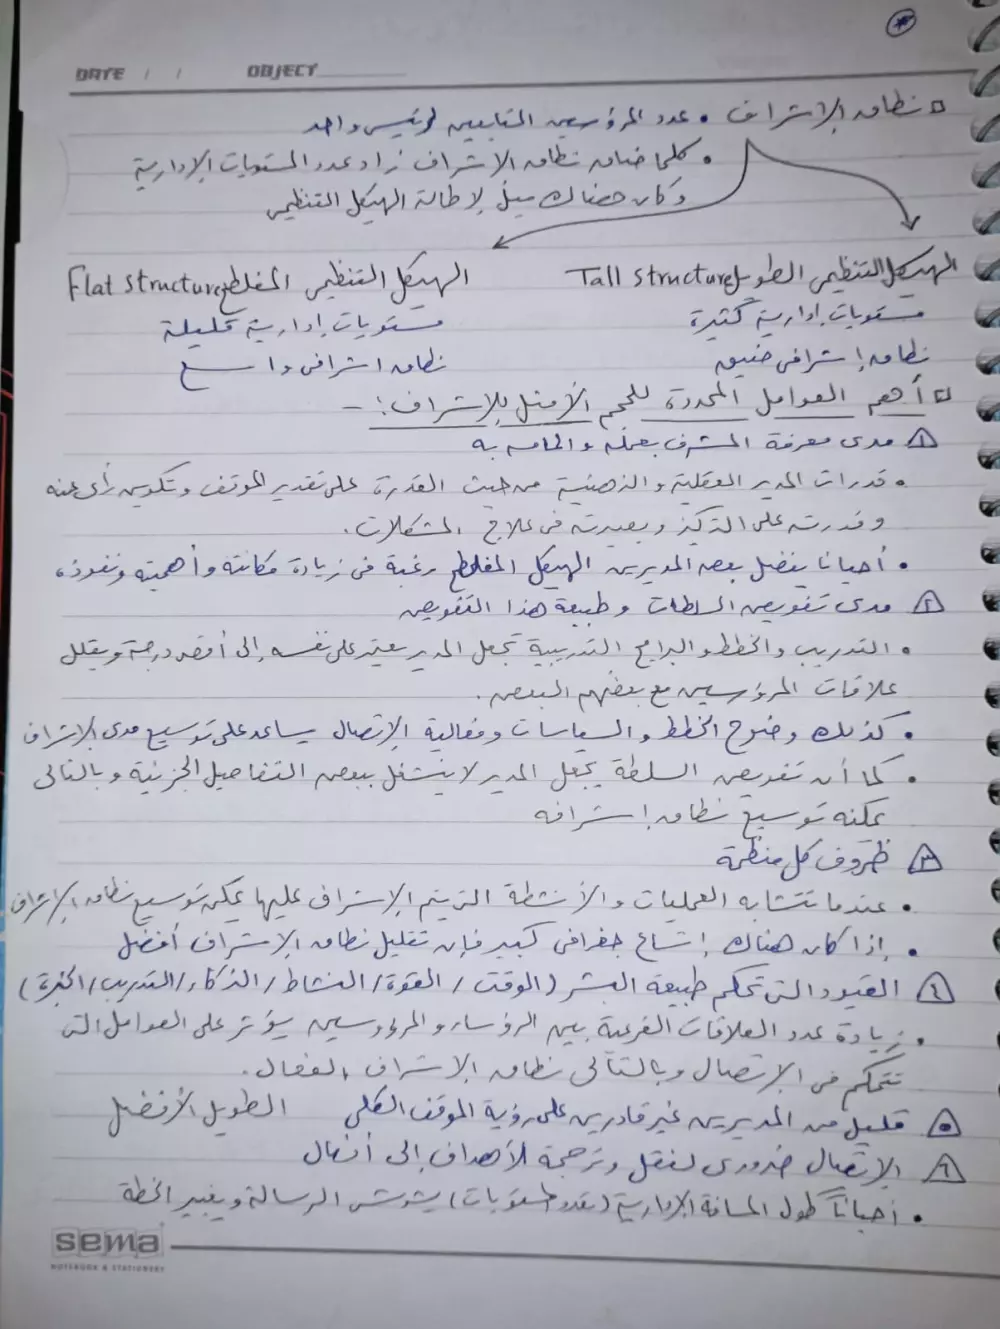 *
DATE / / OBJECT
نطاق الإشراف • عدد المرؤوسين التابعين لرئيس واحد
• كلما ضاق نطاق الإشراف زاد عدد المستويات الإدارية
وكان هناك ميل لإطالة الهيكل التنظيمى
الهيكل التنظيمى الطويل Tall Structure الهيكل التنظيمى المفلطح Flat Structure
مستويات إدارية كثيرة مستويات إدارية قليلة
نطاق إشرافى ضيق نطاق اشرافى واسع
أهم العوامل المحددة للحجم الأمثل للإشراف :-
١ مدى معرفة المشرف بعمله والمامه به
• قدرات المدير العقلية والذهنية من حيث القدرة على تقدير الموقف وتكوين رأى عنه
وقدرته على التركيز وبصيرته فى علاج المشكلات.
• أحيانا يفضل بعض المديرين الهيكل المفلطح رغبة فى زيادة مكانته وأهميته ونفوذه
٢ مدى تفويض السلطات وطبيعة هذا التفويض
• التدريب والخطط والبرامج التدريبية تجعل المدير يعتمد على نفسه إلى أقصى درجة ويقلل
علاقات المرؤسين مع بعضهم البعض.
• كذلك وضوح الخطط والسياسات وفعالية الإتصال يساعد على توسيع مدى الإشراف
• كما أن تفويض السلطة يجعل المدير لا ينشغل ببعض التفاصيل الجزئية وبالتالى
يمكنه توسيع نطاق إشرافه
٣ ظروف كل منظمة
• عندما تتشابه العمليات والأنشطة التى يتم الإشراف عليها يمكن توسيع نطاق الإشراف
• إذا كان هناك إتساع جغرافى كبير فإن تقليل نطاق الإشراف أفضل
٤ القيود التى تحكم طبيعة البشر (الوقت / القوة / النشاط / الذكاء / التدريب / الخبرة)
• زيادة عدد العلاقات الفرعية بين الرؤساء والمرؤوسين يؤثر على العوامل التى
تتحكم فى الإتصال وبالتالى نطاق الإشراف الفعال.
٥ قليل من المديرين غير قادرين على رؤية الموقف الكلى الطويل الأفضل
٦ الإتصال ضرورى لنقل وترجمة الأهداف إلى أفعال
• أحياناً طول المسافة الإدارية (بعدد المستويات) يشوش الرسالة ويغير الخطة
sema
NOTEBOOK & STATIONERY